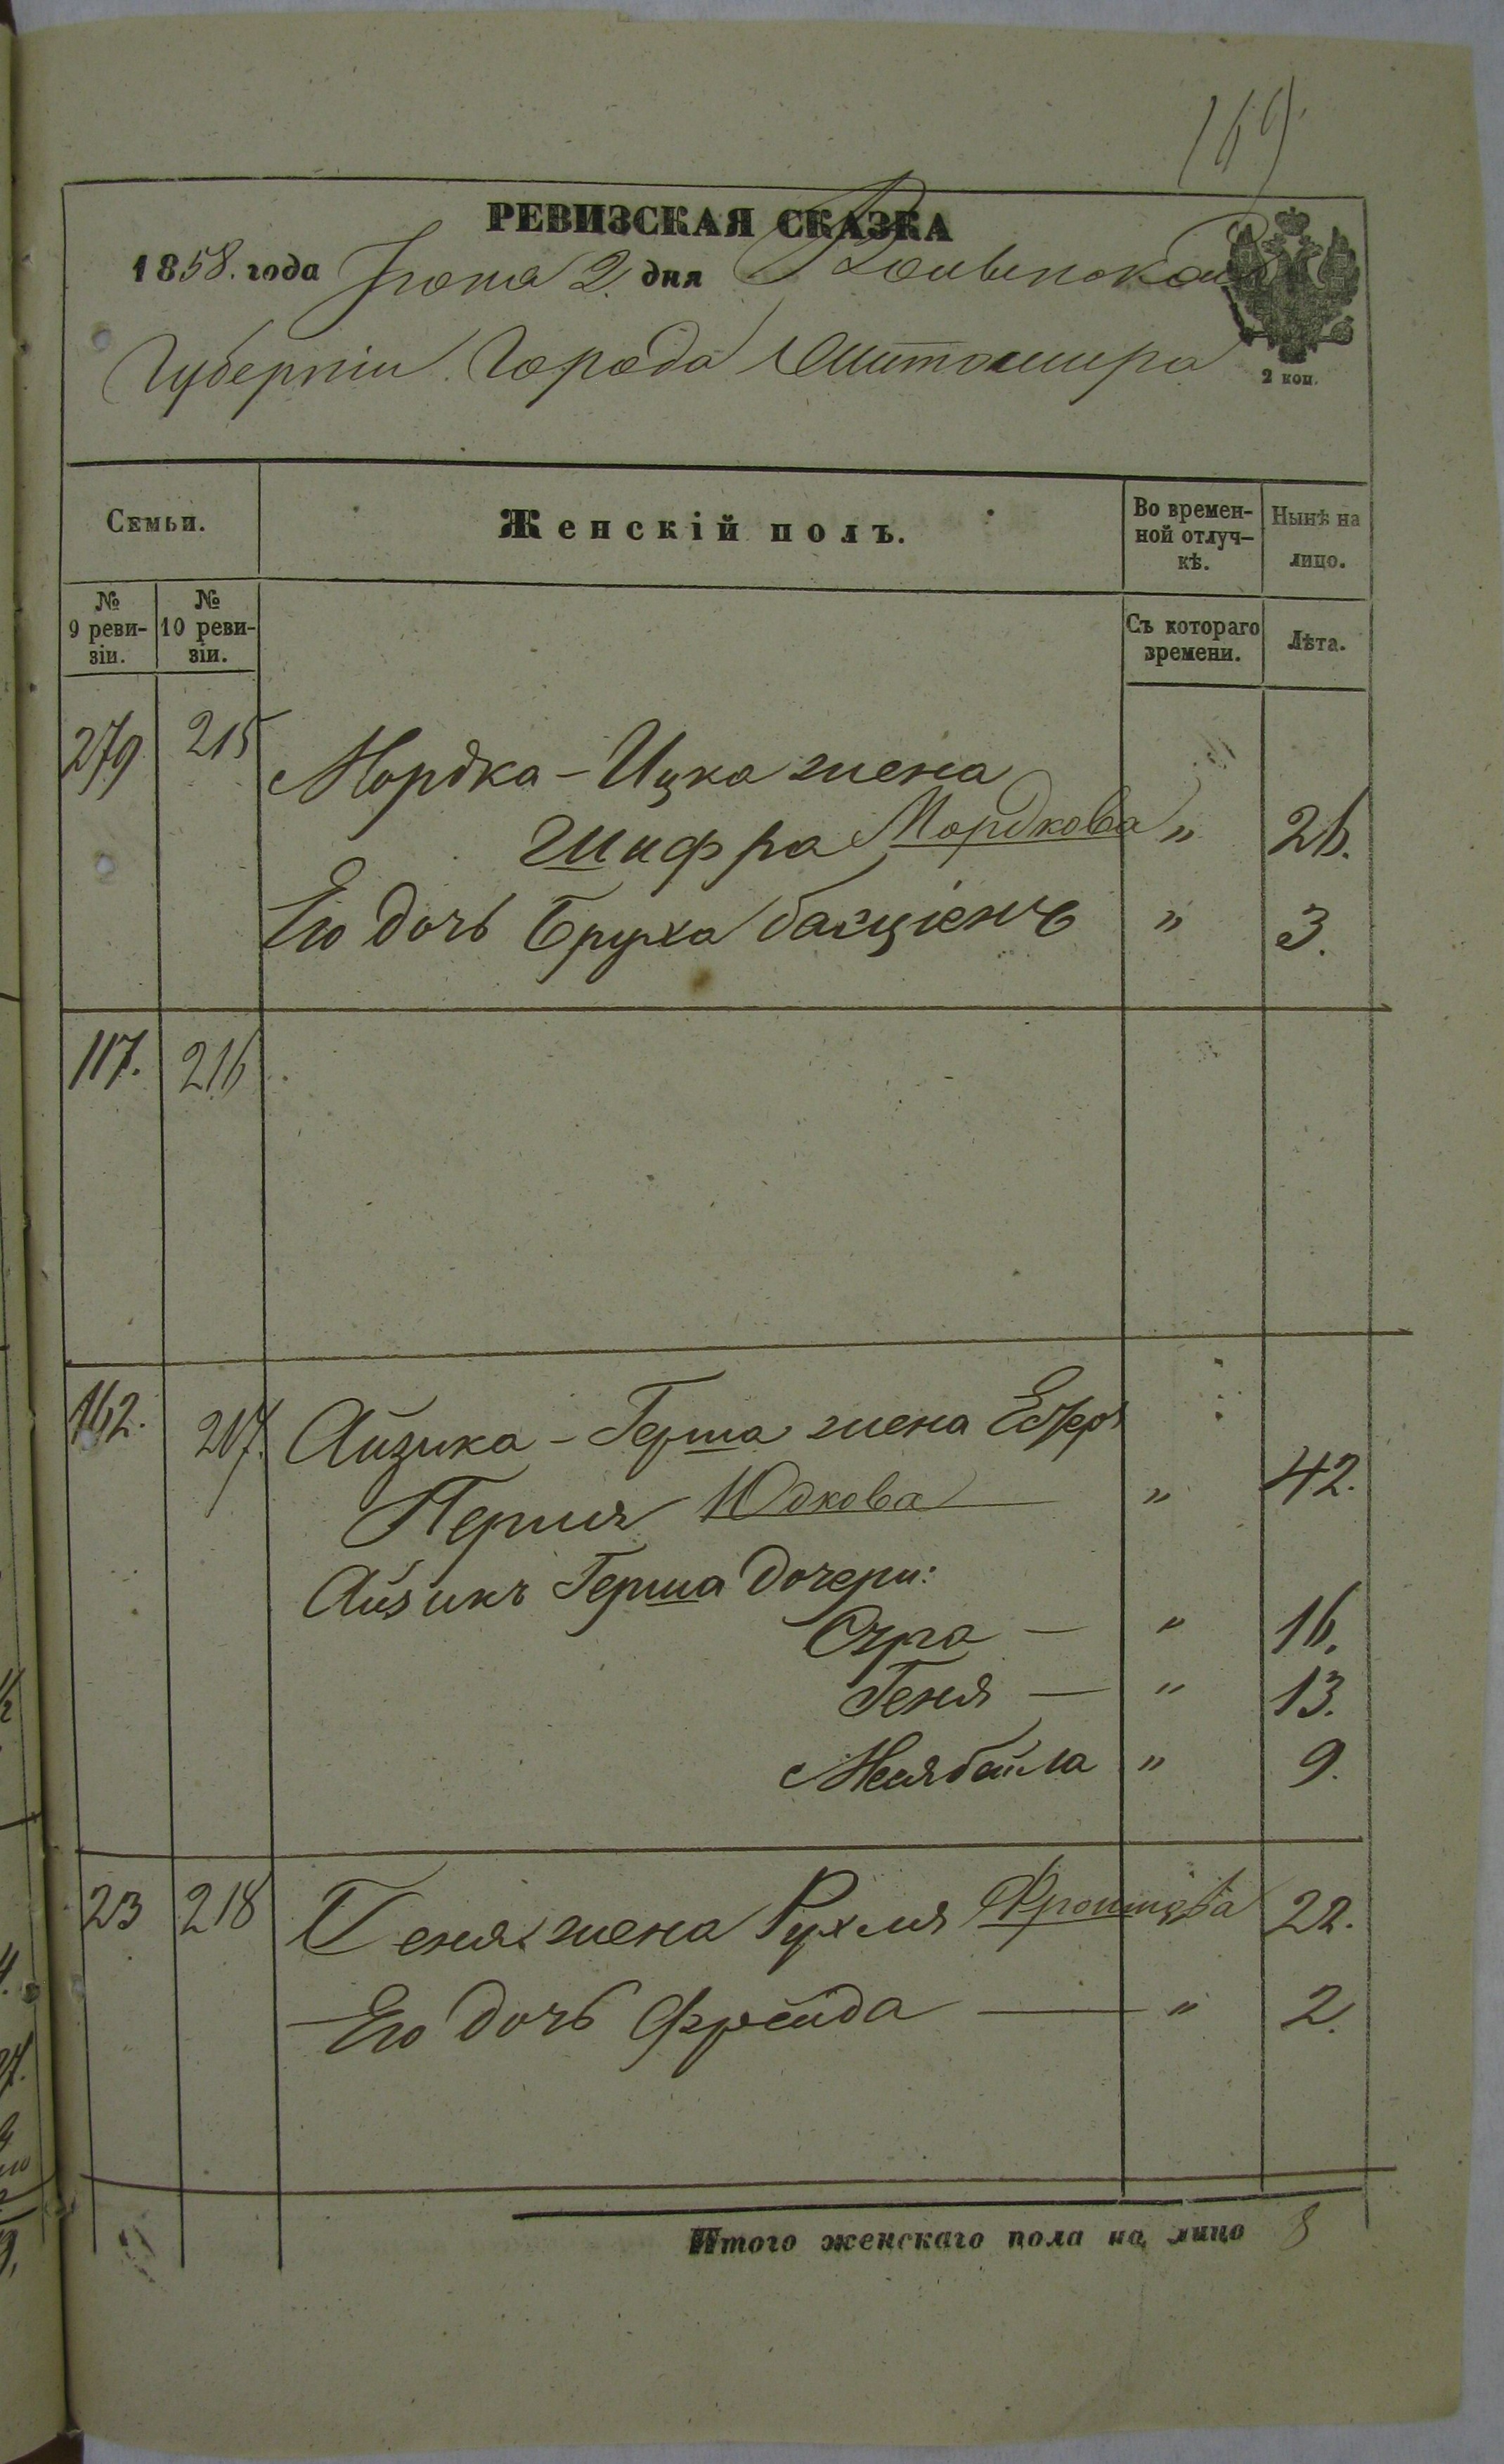 169
РЕВИЗСКАЯ СКАЗКА
1858. года Іюня 2 дня Волынской
Губерніи Города Житомира
2 коп.
Семьи.
Женскій полъ.
Во времен-
ной отлуч-
кѣ.
Нынѣ на
лицо.
№
9 реви-
зіи.
№
10 реви-
зіи.
Съ котораго
времени.
Лѣта.
279 215 Мордка-Ицка жена
Шифра Мордкова " 26.
Его дочь Бруха " 3.
117. 216
162. 217. Айзика-Герша жена
Перля Юдкова " 42.
Айзикъ Герша дочери:
— " 16.
Геня — " 13.
" 9.
23 218 жена Рухля Фроимова 22.
Его дочь Фрейда — " 2.
Итого женскаго пола на лицо 8